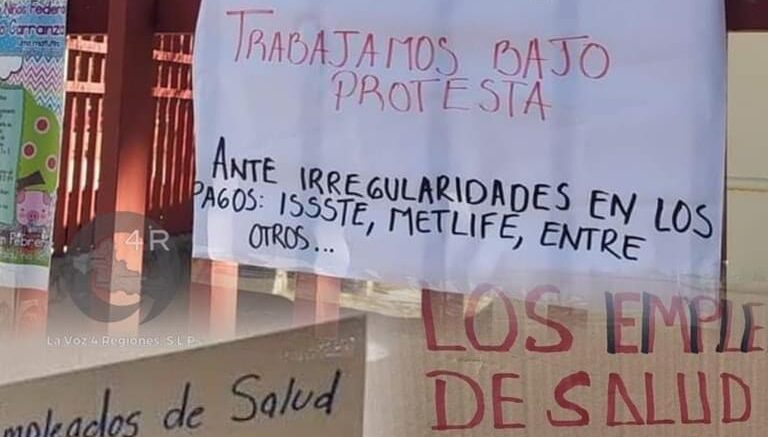 Niños Federi
o Carranza
TRABAJAMOS BAJO
PROTESTA
ANTE IRREGULARIDADES EN LOS
PAGOS: ISSSTE, METLIFE, ENTRE
OTROS...
4R
La Voz 4 Regiones, S.L.P.
LOS EMPLE
DE SALUD
mpleados de Salud